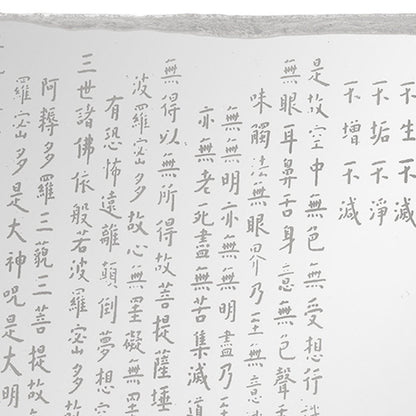 不生不滅
不垢不淨
不增不減
是故空中無色無受想行
無眼耳鼻舌身意無色聲
味觸法無眼界乃至無意
無無明亦無無明盡乃
亦無老死盡無苦集滅道
無得以無所得故菩提薩埵
波羅密多故心無罣礙無
有恐怖遠離顛倒夢想
三世諸佛依般若波羅密多故
阿耨多羅三藐三菩提故
羅密多是大神咒是大明